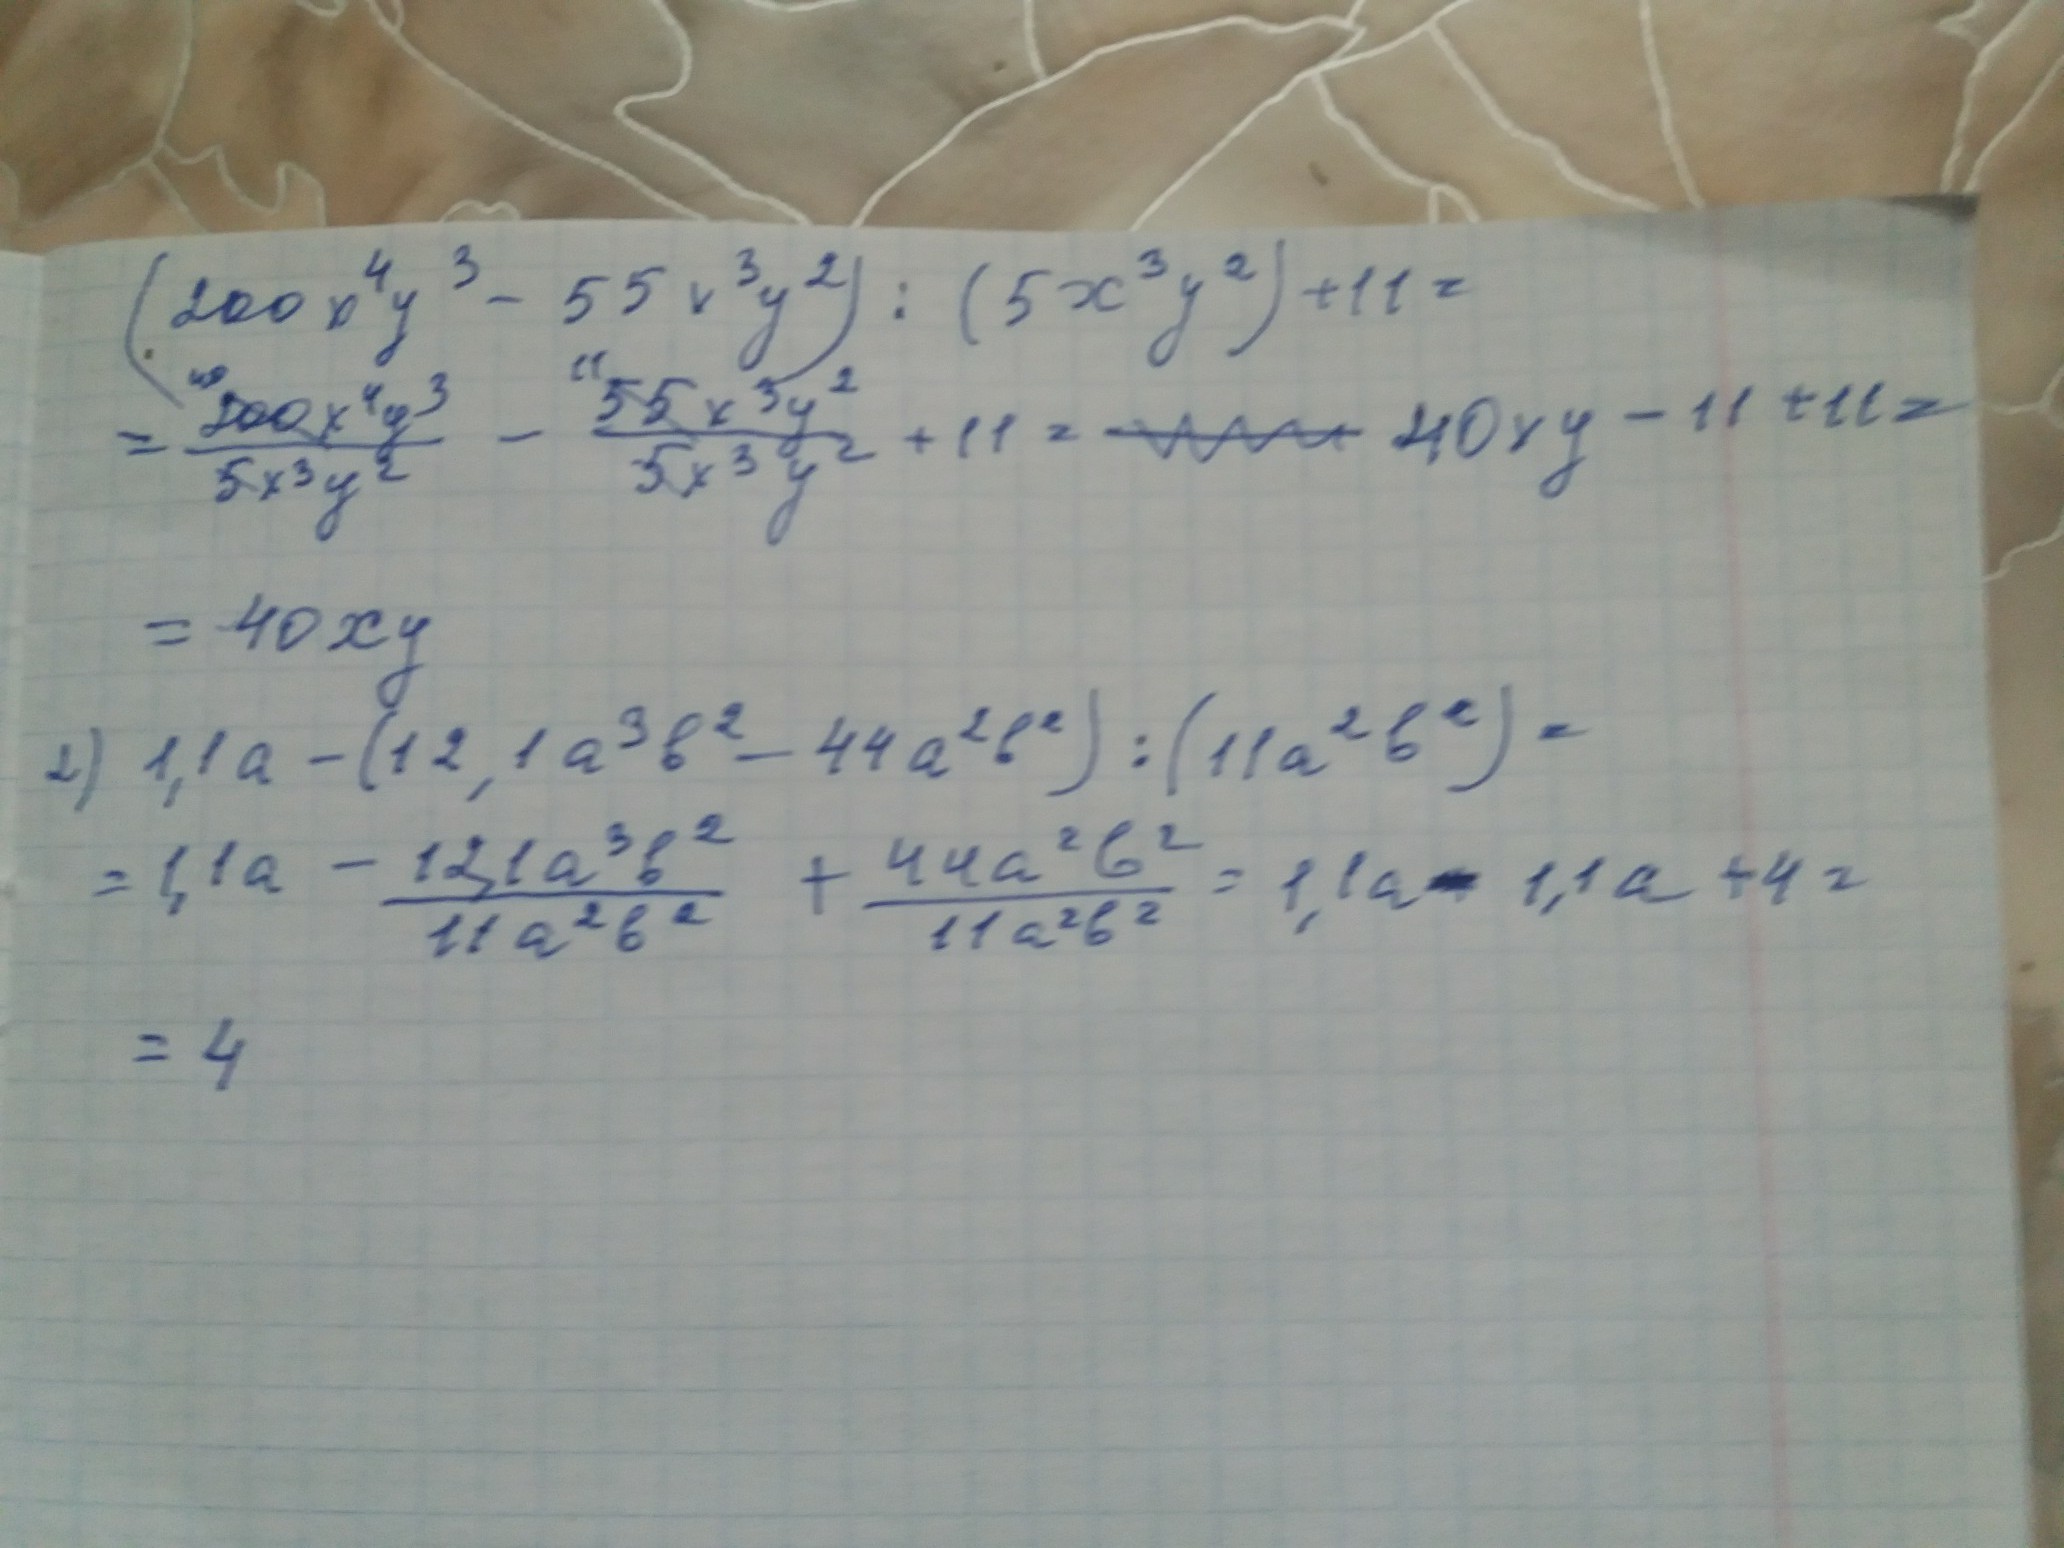 (200x⁴y³ - 55x³y²) : (5x³y²) + 11 =
= 200x⁴y³/5x³y² - 55x³y²/5x³y² + 11 = 40xy - 11 + 11 =
= 40xy
2) 1,1a - (12,1a³b² - 44a²b²) : (11a²b²) =
= 1,1a - 12,1a³b²/11a²b² + 44a²b²/11a²b² = 1,1a - 1,1a + 4 =
= 4